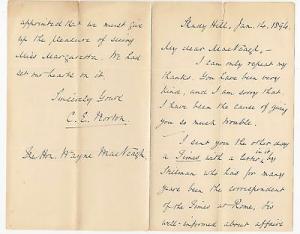 Shady Hill, Jan. 14, 1894.
My dear MacVeagh,—
I can only repeat my
thanks. You have been very
kind, and I am sorry that
I have been the cause of giving
you so much trouble.
I sent you the other day
a Times with a letter in it by
Stillman who has for many
years been the correspondent
of the Times at Rome, &is
well-informed about affairs
appointed that we must give
up the pleasure of seeing
Miss Margaretta. We had
set our hearts on it.
Sincerely Yours
C. E. Norton.
The Hon. Wayne MacVeagh.